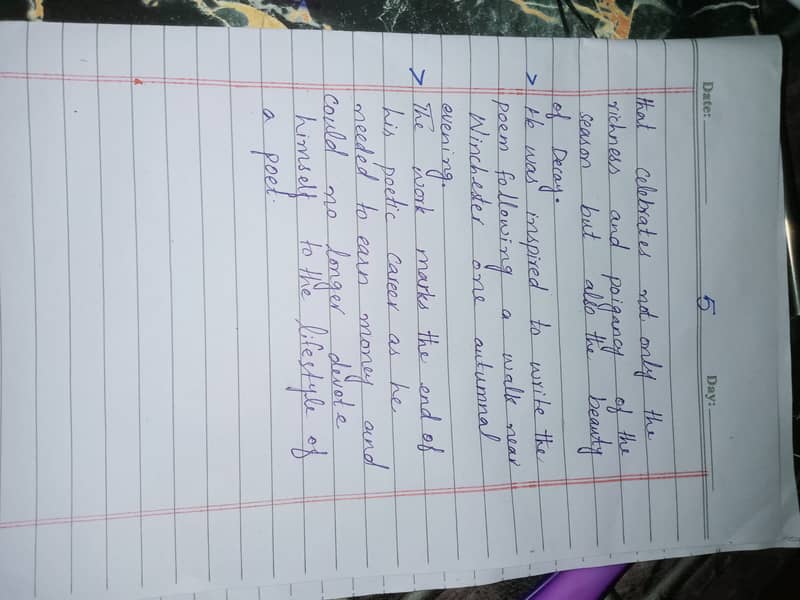 Date: 5 Day:
that celebrates not only the
richness and poigancy of the
season but also the beauty
of Decay.
> He was inspired to write the
poem following a walk near
Winchester one autumnal
evening.
> The work marks the end of
his poetic career as he
needed to earn money and
could no longer devote
himself to the lifestyle of
a poet.